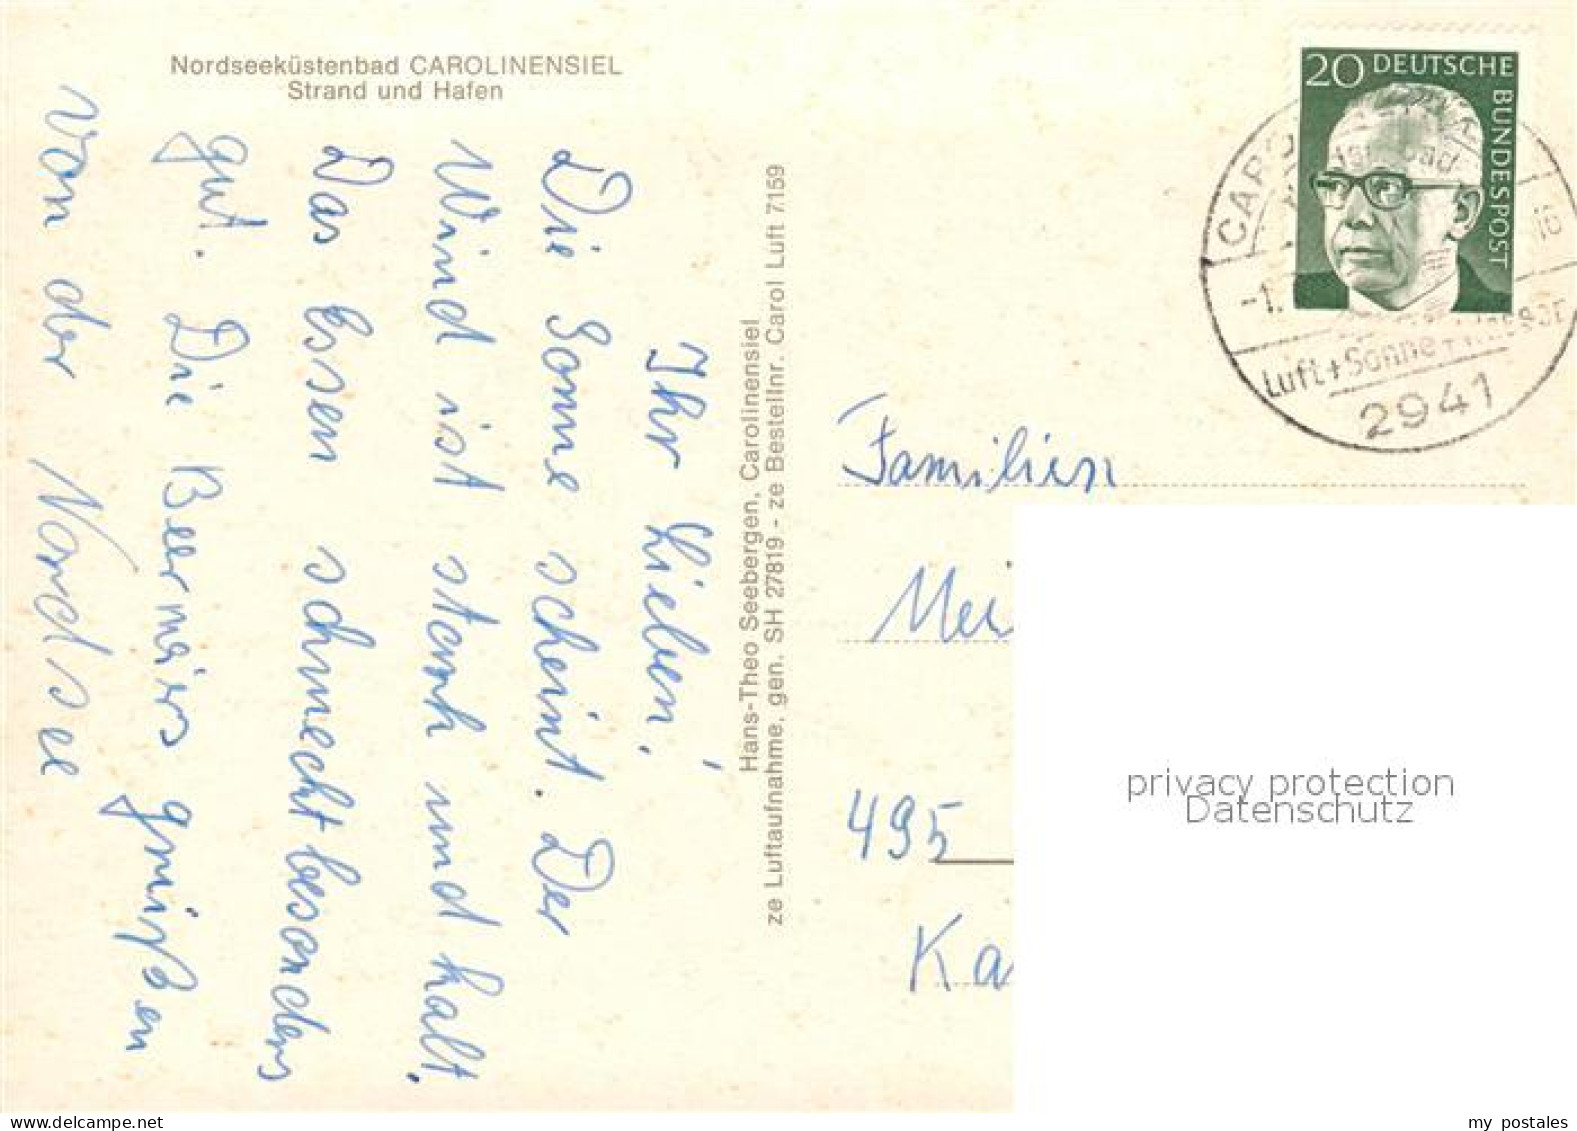 Nordseeküstenbad CAROLINENSIEL
Strand und Hafen
Ihr Lieben!
Die Sonne scheint. Der
Wind ist stark und kalt.
Das Essen schmeckt besonders
gut. Die Beermärs grüßen
von der Nordsee
Hans-Theo Seebergen, Carolinensiel
ze Luftaufnahme, gen. SH 27819 - ze Bestellnr. Carol Luft 7159
20 DEUTSCHE
BUNDESPOST
-1.
Luft+Sonne+
2941
Familien
Mei
495
Ka
privacy protection
Datenschutz
my postales